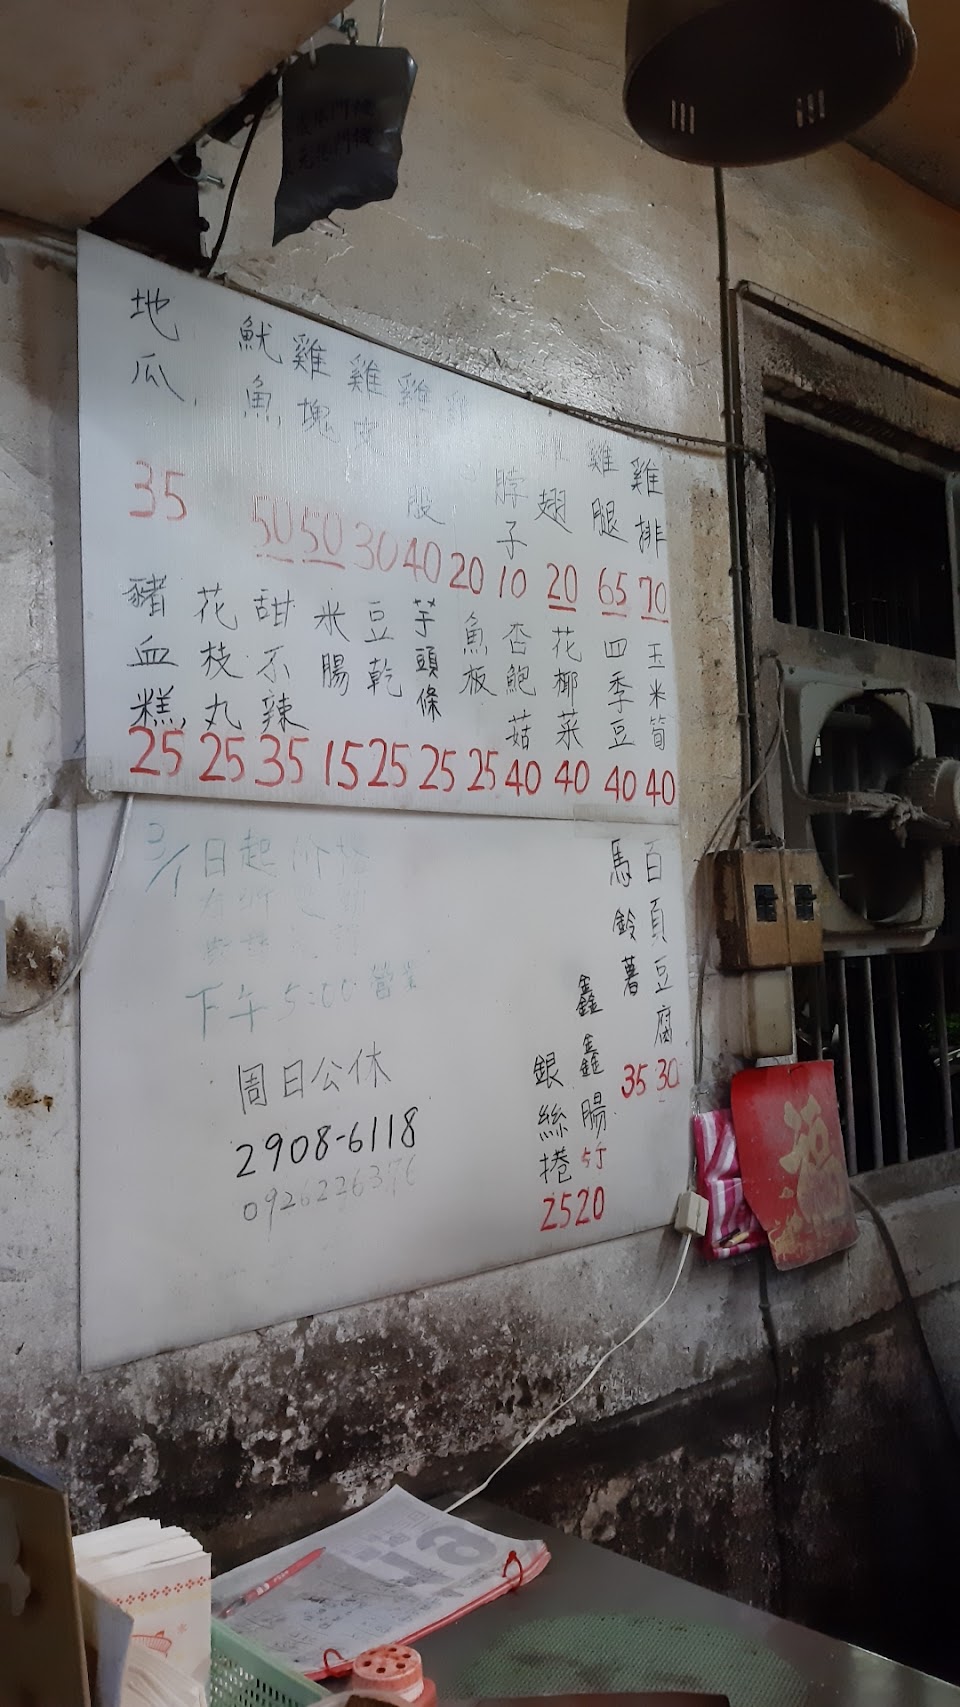 雞排 70
雞腿 65
翅 20
脖子 10
20
雞 股 40
雞 30
雞塊 50
魷魚 50
地瓜 35
玉米筍 40
四季豆 40
花椰菜 40
杏鮑菇 40
魚板 25
芋頭條 25
豆乾 25
米腸 15
甜不辣 35
花枝丸 25
豬血糕 25
百頁豆腐 30
馬鈴薯 35
鑫鑫腸 5丁 20
銀絲捲 25
3/1日起價格
下午5:00營業
周日公休
2908-6118
0926226376
福